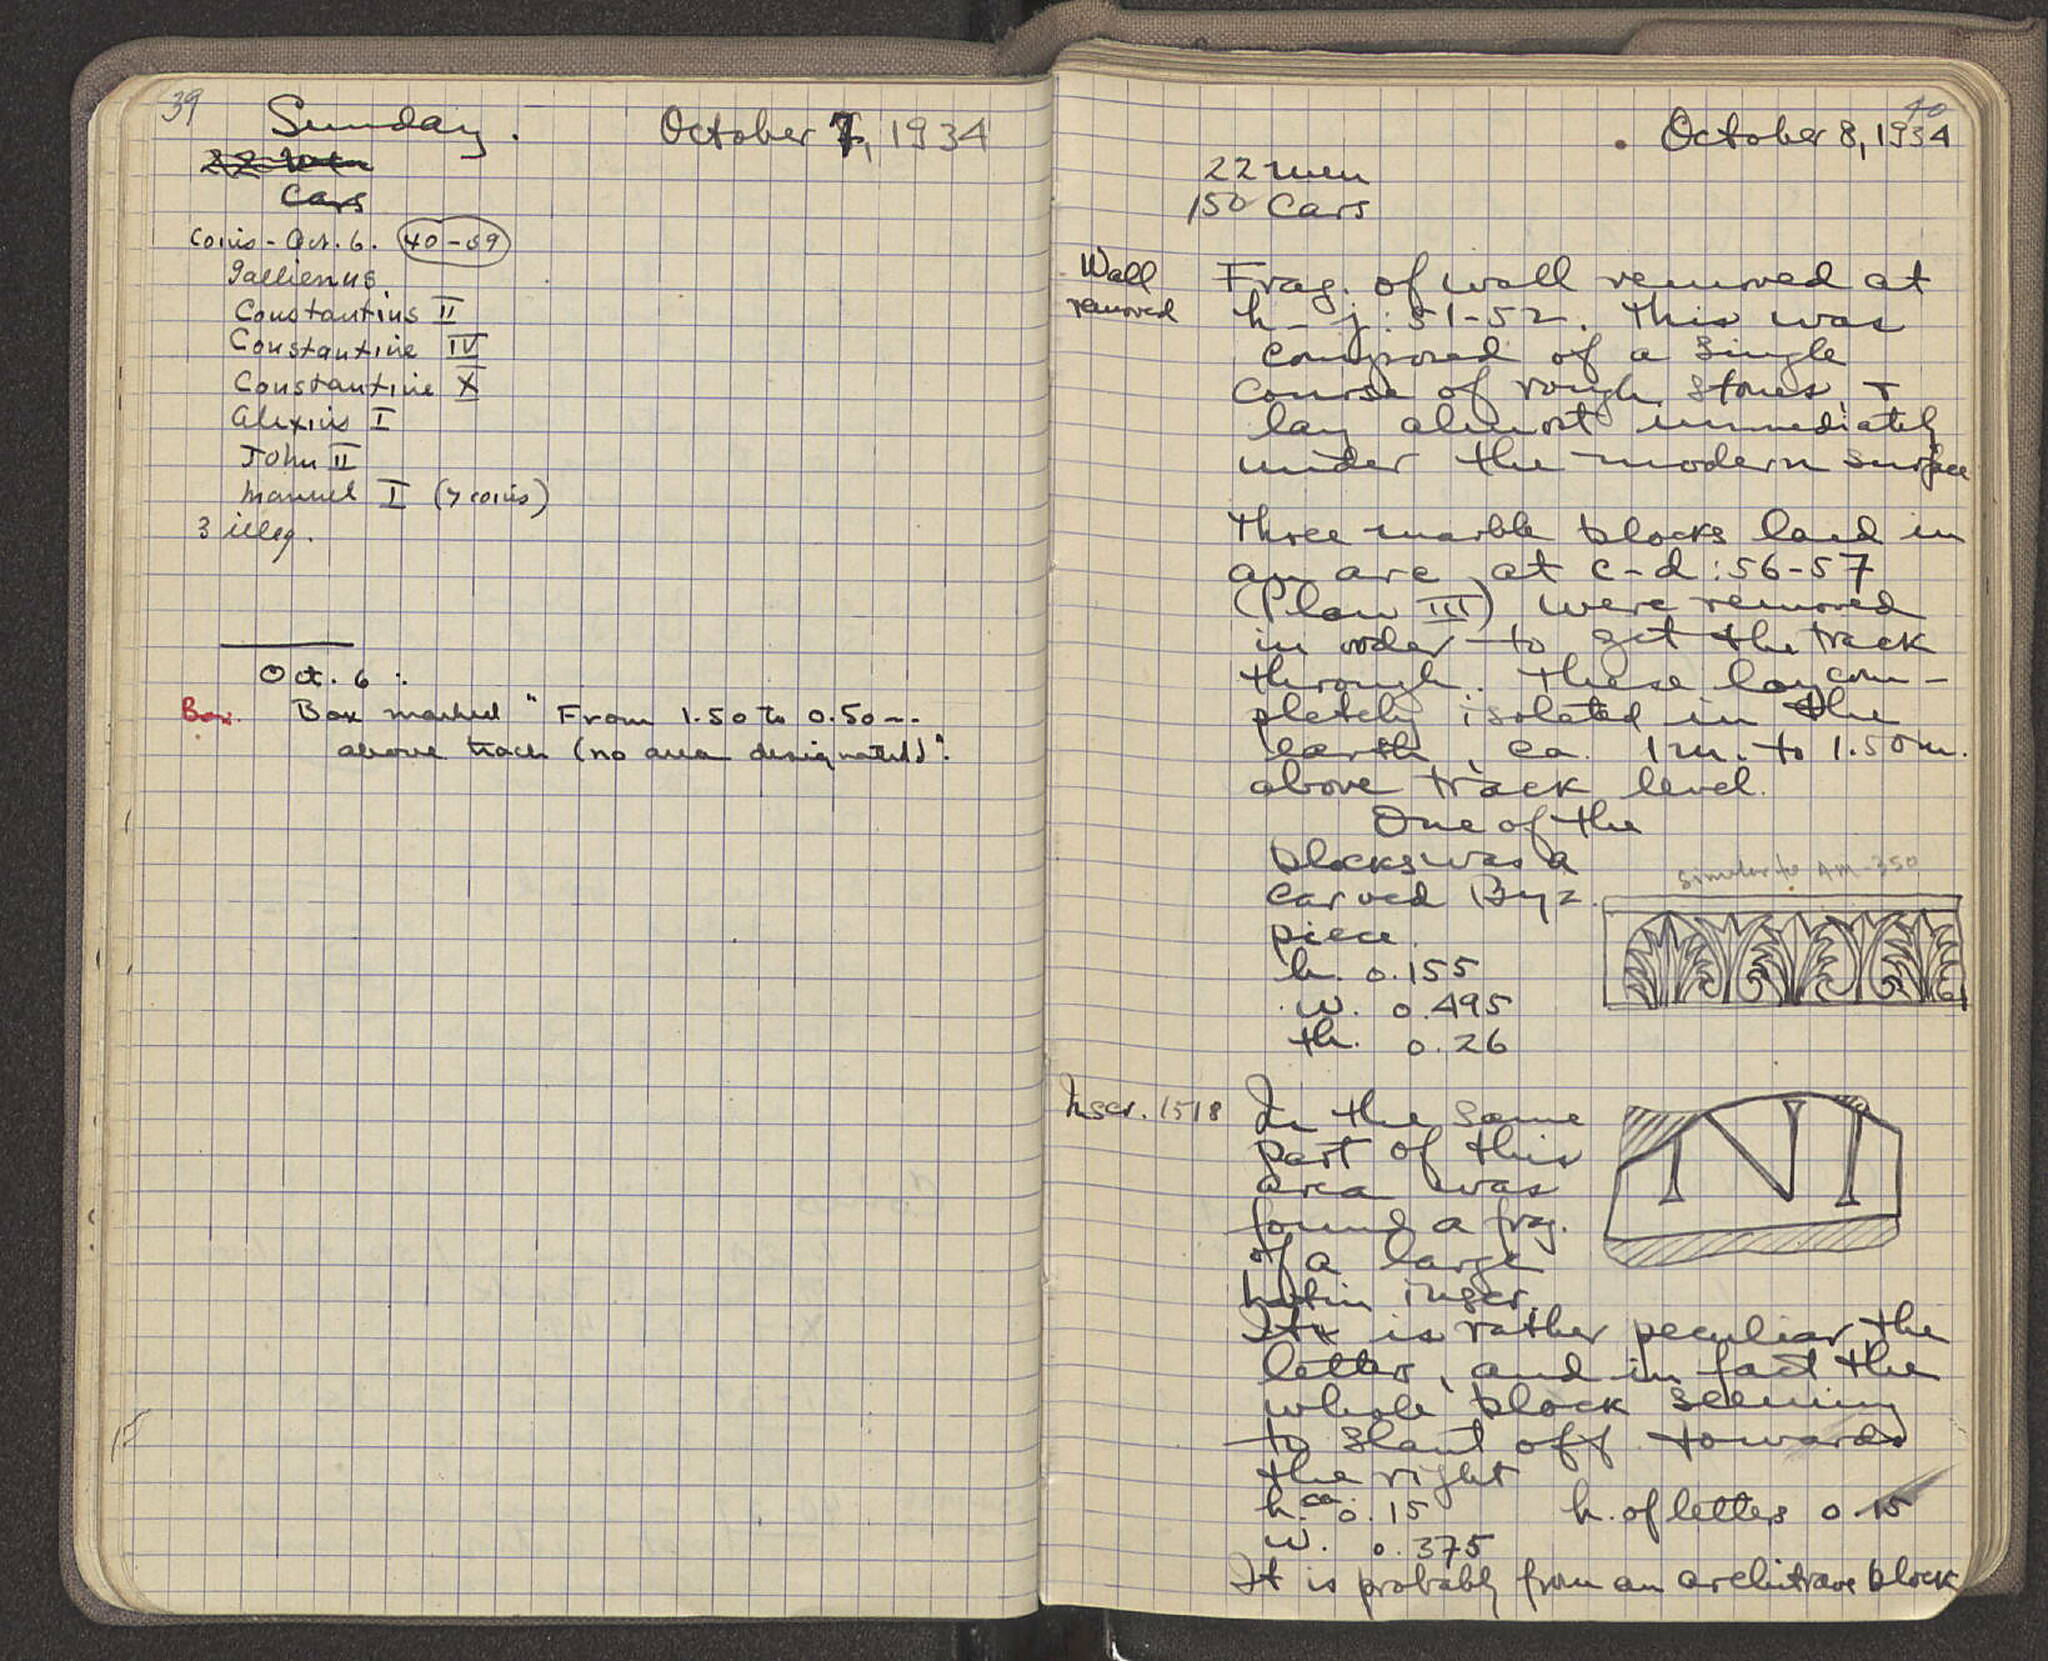 39
Sunday. October 7, 1934
22 men
Cars
Coins - Oct. 6. 40-59
Gallienus
Constantius II
Constantine IV
Constantine X
Alexius I
John II
Manuel I (7 coins)
3 illeg.
Oct. 6 :
Box. Box marked "From 1.50 to 0.50 --
above track (no area designated)".
40
October 8, 1934
22 men
150 Cars
Wall
removed
Frag. of wall removed at
h - j : 51-52. This was
composed of a single
course of rough stones, +
lay almost immediately
under the modern surface
Three marble blocks laid in
an arc at c-d : 56-57
(Plan III) were removed
in order to get the track
through. These lay com-
pletely isolated in the
earth, ca. 1 m. to 1.50 m.
above track level.
One of the
blocks was a
carved Byz.
piece.
h. 0.155
w. 0.495
th. 0.26
Similar to AM-350
Inscr. 1518
In the same
part of this
area was
found a frag.
of a large
Latin inscr.
It is rather peculiar the
letter, and in fact the
whole block seeming
to slant off towards
the right
h. ca. 0.15 h. of letters 0.15
w. 0.375
It is probably from an architrave block